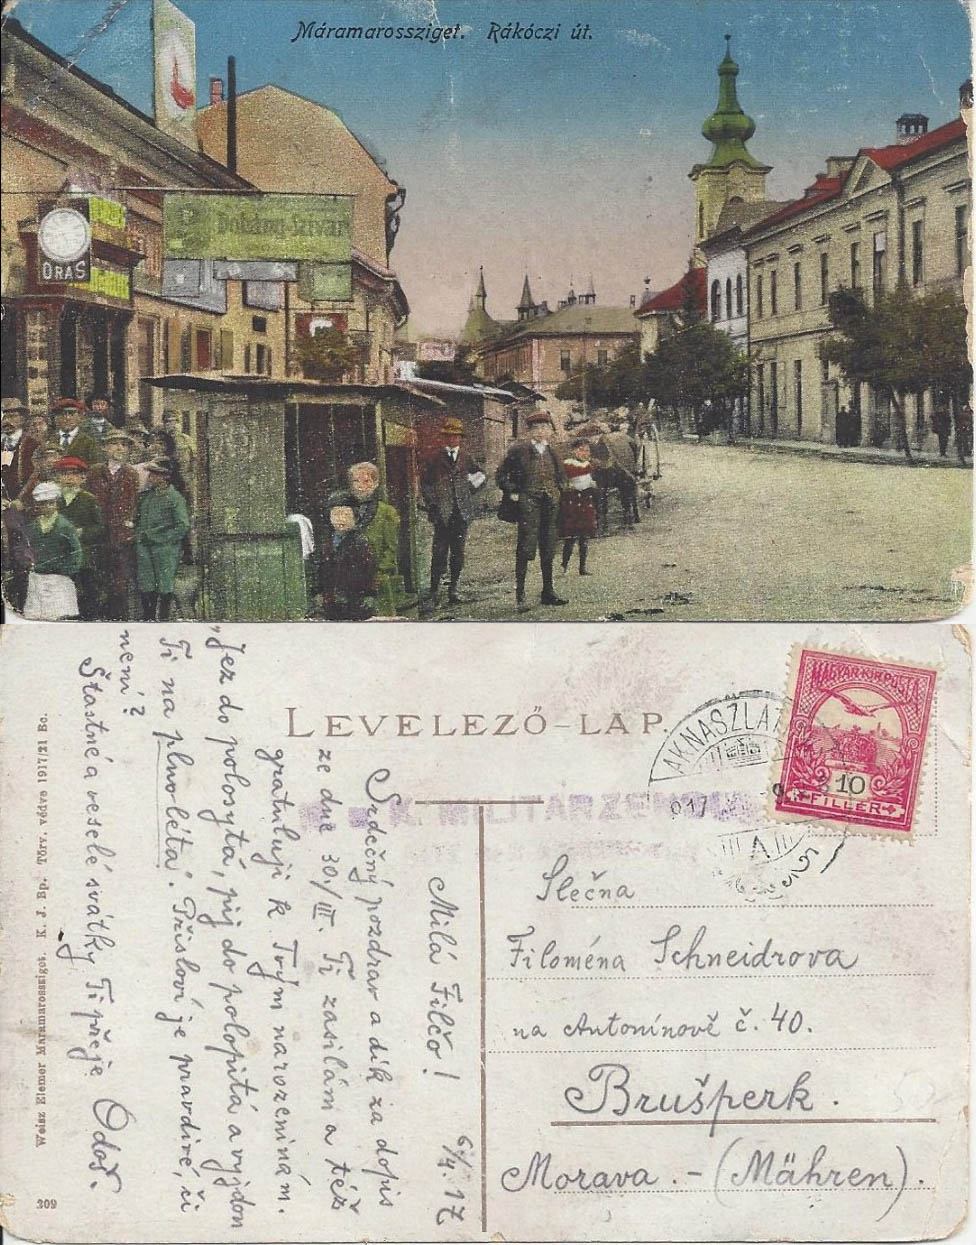 Máramarossziget. Rákóczi út.
ÓRÁS
Dobány-Szivar
LEVELEZŐ-LAP.
MAGYAR KIR. POSTA
10
FILLER
AKNASZLAT
917
A
K. MILITÄRZENSUR
6/4. 17
Milá Filčo!
Srdečný pozdrav a dík za dopis
ze dne 30./III. Ti zasílám a též
gratuluji k Tvým narozeninám.
„Jez do polosytá, pij do polopitá a vyjdou
Ti na plno léta". Přísloví je pravdivé, či
není?
Šťastné a veselé svátky Ti přeje Odoš.
Slečna
Filoména Schneidrova
na Antonínově č. 40.
Brušperk.
Morava. - (Mähren).
Weisz Elemer Maramarossziget. K. J. Bp. Törv. védve 1917/21 Bo.
309